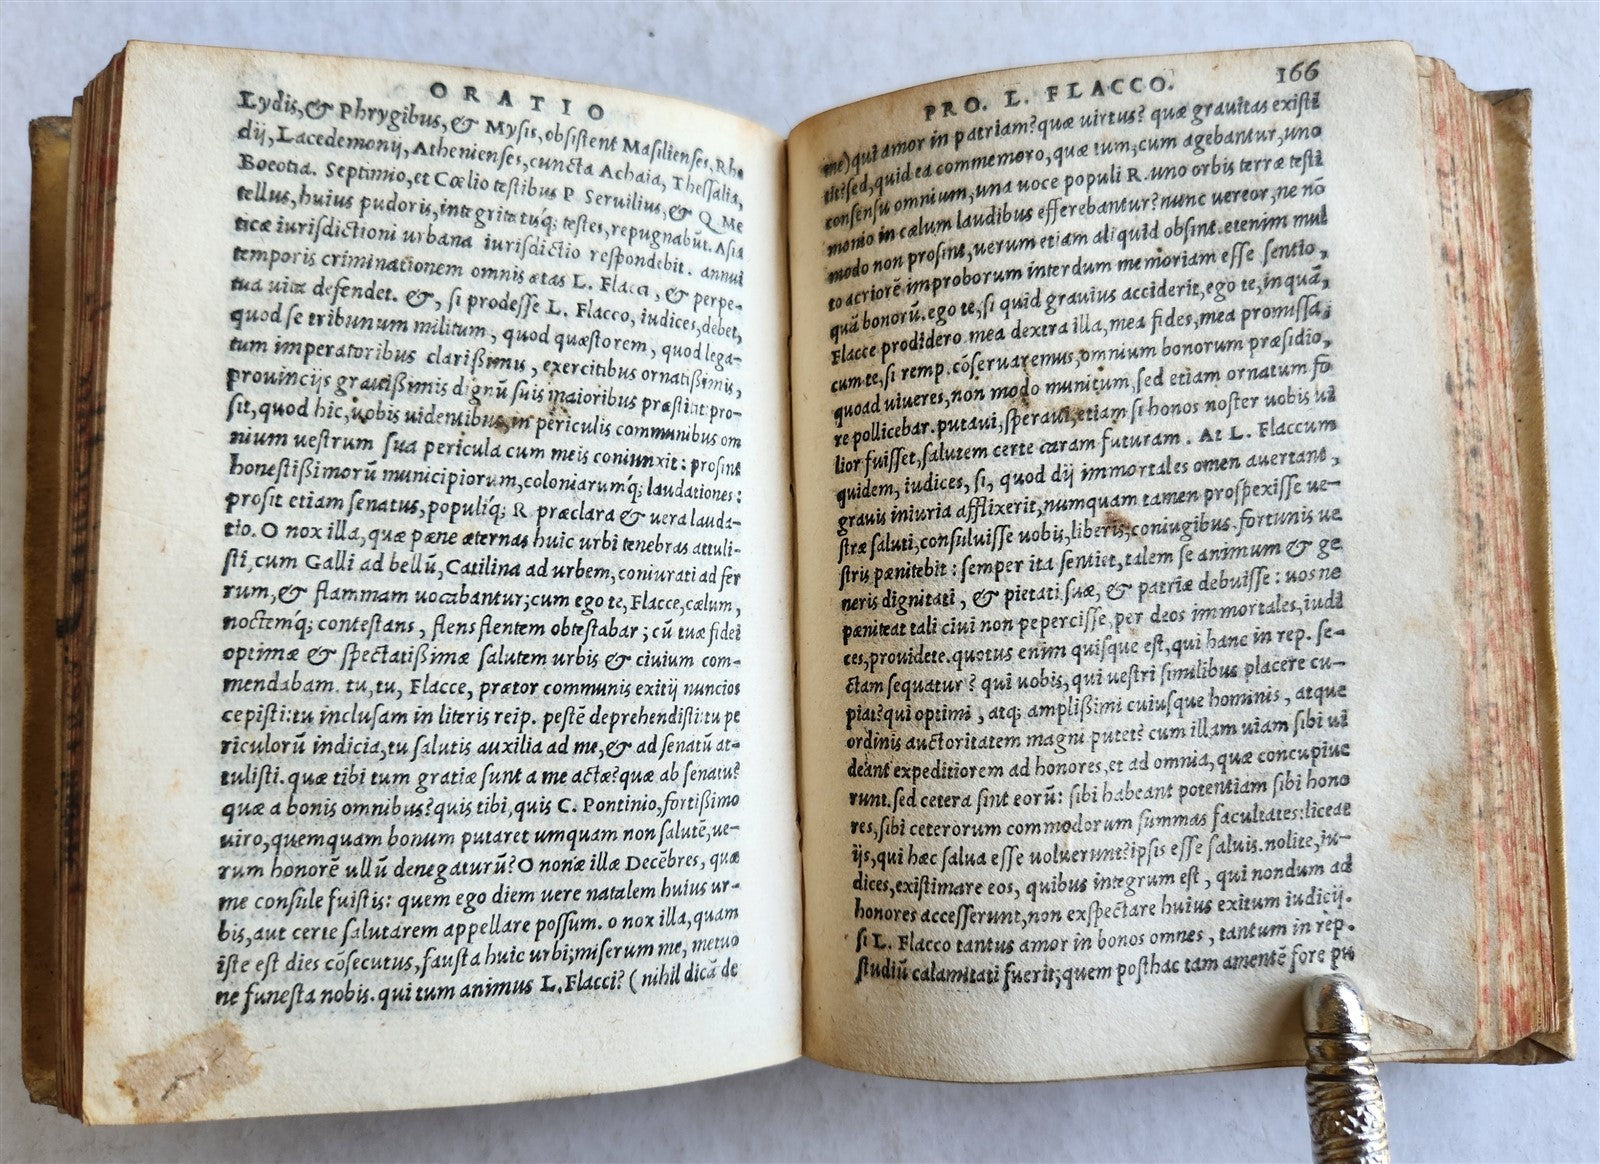 ORATIO
Lydis,& Phrygibus,& Mysis,obsistent Masilienses,Rho
dij,Lacedemonij,Athenienses,cuncta Achaia, Thessalia,
Boeotia. Septimio,et Cœlio testibus P. Seruilius,& Q. Me
tellus,huius pudoris,integritatuq́; testes,repugnabūt. Asia
ticæ iurisdictioni urbana iurisdictio respondebit. annui
temporis criminationem omnis ætas L. Flacci, & perpe-
tua uita defendet. &, si prodesse L. Flacco, iudices,debet,
quod se tribunum militum, quod quæstorem, quod lega-
tum imperatoribus clarißimis, exercitibus ornatißimis,
prouincijs grauißimis dignū suis maioribus præstitit:pro-
sit,quod hic,uobis uidentibus,in periculis communibus om
nium uestrum sua pericula cum meis coniunxit: prosint
honestißimorū municipiorum,coloniarumq́; laudationes:
prosit etiam senatus,populiq́; R. præclara & uera lauda-
tio. O nox illa,quæ pæne æternas huic urbi tenebras attuli-
sti,cum Galli ad bellū,Catilina ad urbem,coniurati ad fer
rum,& flammam uocabantur;cum ego te,Flacce,cælum,
noctemq́; contestans, flens flentem obtestabar; cū tuæ fidei
optimæ & spectatißimæ salutem urbis & ciuium com-
mendabam. tu,tu, Flacce, prætor communis exitij nuncios
cepisti:tu inclusam in literis reip. pestē deprehendisti:tu pe
riculorū indicia,tu salutis auxilia ad me,& ad senatū at-
tulisti. quæ tibi tum gratiæ sunt a me actæ?quæ ab senatu?
quæ a bonis omnibus?quis tibi,quis C. Pontinio,fortißimo
uiro,quemquam bonum putaret umquam non salutē,ue-
rum honorē ullū denegaturū?O nonæ illæ Decēbres, quæ
me consule fuistis: quem ego diem uere natalem huius ur-
bis,aut certe salutarem appellare possum. o nox illa,quam
iste est dies cōsecutus,fausta huic urbi;miserum me, metuo
ne funesta nobis.qui tum animus L.Flacci? (nihil dicā de
PRO. L. FLACCO. 166
me)qui amor in patriam?quæ uirtus? quæ grauitas existi
tit?sed,quid ea commemoro,quæ tum,cum agebantur,uno
consensu omnium,una uoce populi R.uno orbis terræ testi
monio in cælum laudibus efferebantur?nunc uereor,ne nō
modo non prosint,uerum etiam aliquid obsint.etenim mul
to acriorē improborum interdum memoriam esse sentio,
quā bonorū.ego te,si quid grauius acciderit,ego te,inquā,
Flacce prodidero.mea dextra illa,mea fides,mea promissa;
cum te,si remp.cōseruaremus,omnium bonorum præsidio,
quoad uiueres,non modo munitum,sed etiam ornatum fo
re pollicebar.putaui,speraui,etiam si honos noster uobis ui
lior fuisset,salutem certe caram futuram. At L. Flaccum
quidem, iudices, si, quod dij immortales omen auertant,
grauis iniuria afflixerit,numquam tamen prospexisse ue-
stræ saluti,consuluisse uobis,liberis,coniugibus,fortunis ue
stris pænitebit: semper ita sentiet,talem se animum & ge
neris dignitati, & pietati suæ, & patriæ debuisse: uos ne
pæniteat tali ciui non pepercisse,per deos immortales,iudi
ces,prouidete.quotus enim quisque est,qui hanc in rep. se-
ctam sequatur? qui uobis,qui uestri similibus placere cu-
piat?qui optimi, atq; amplißimi cuiusque hominis, atque
ordinis auctoritatem magni putet? cum illam uiam sibi ui
deant expeditiorem ad honores,et ad omnia,quæ concupiue
runt.sed cetera sint eorū: sibi habeant potentiam sibi hono
res,sibi ceterorum commodorum summas facultates:liceat
ijs,qui hæc salua esse uoluerunt?ipsis esse saluis.nolite,iu-
dices,existimare eos, quibus integrum est, qui nondum ad
honores accesserunt,non exspectare huius exitum iudicij.
si L. Flacco tantus amor in bonos omnes, tantum in rep.
studiū calamitati fuerit;quem posthac tam amentē fore pu